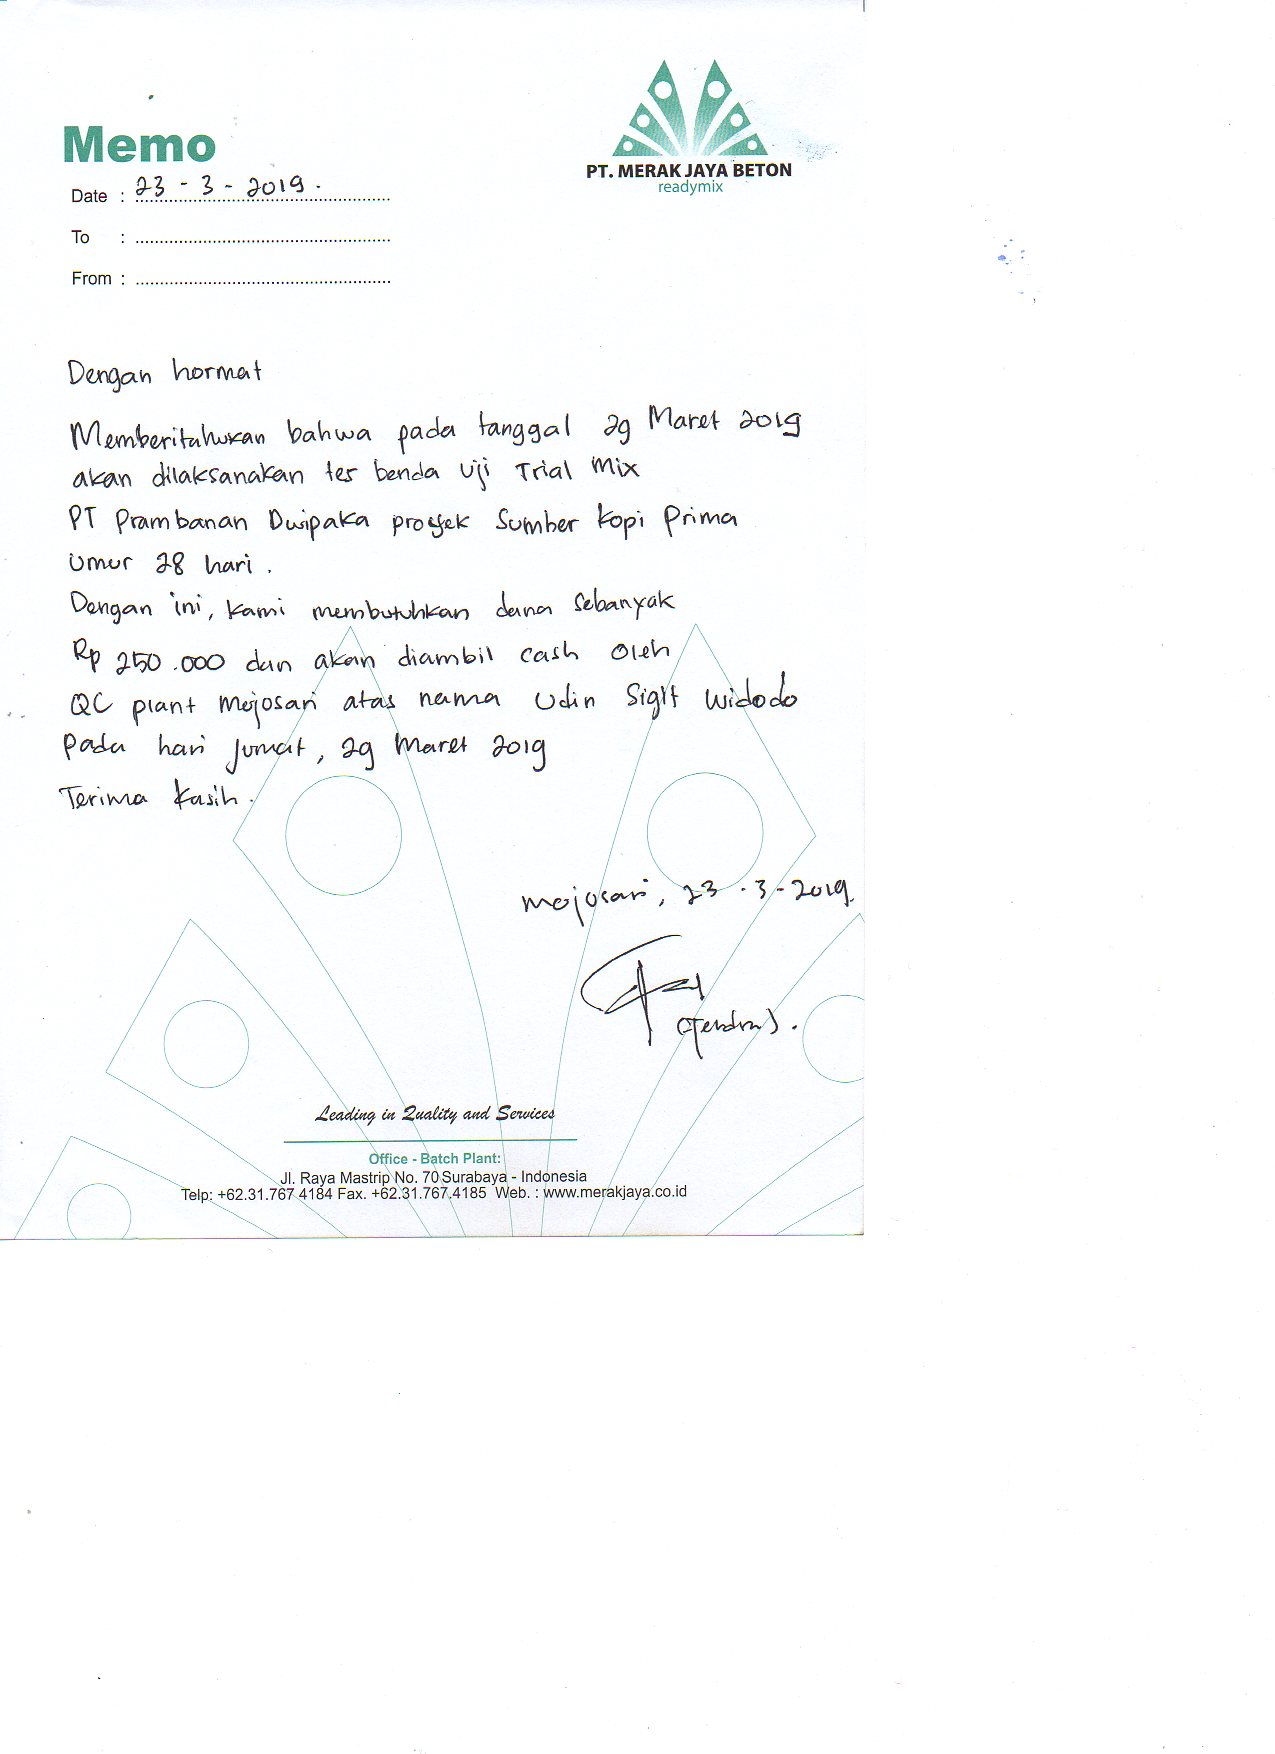 Memo
PT. MERAK JAYA BETON
readymix
Date : 23 - 3 - 2019.
To :
From :
Dengan hormat
Memberitahukan bahwa pada tanggal 29 Maret 2019
akan dilaksanakan tes benda uji Trial Mix
PT Prambanan Dwipaka proyek Sumber Kopi Prima
Umur 28 hari.
Dengan ini, kami membutuhkan dana sebanyak
Rp 250.000 dan akan diambil cash oleh
QC plant Mojosari atas nama Udin Sigit Widodo
Pada hari Jumat, 29 Maret 2019
Terima Kasih.
Mojosari, 23 - 3 - 2019.
Leading in Quality and Services
Office - Batch Plant:
Jl. Raya Mastrip No. 70 Surabaya - Indonesia
Telp: +62.31.767 4184 Fax. +62.31.767.4185 Web. : www.merakjaya.co.id